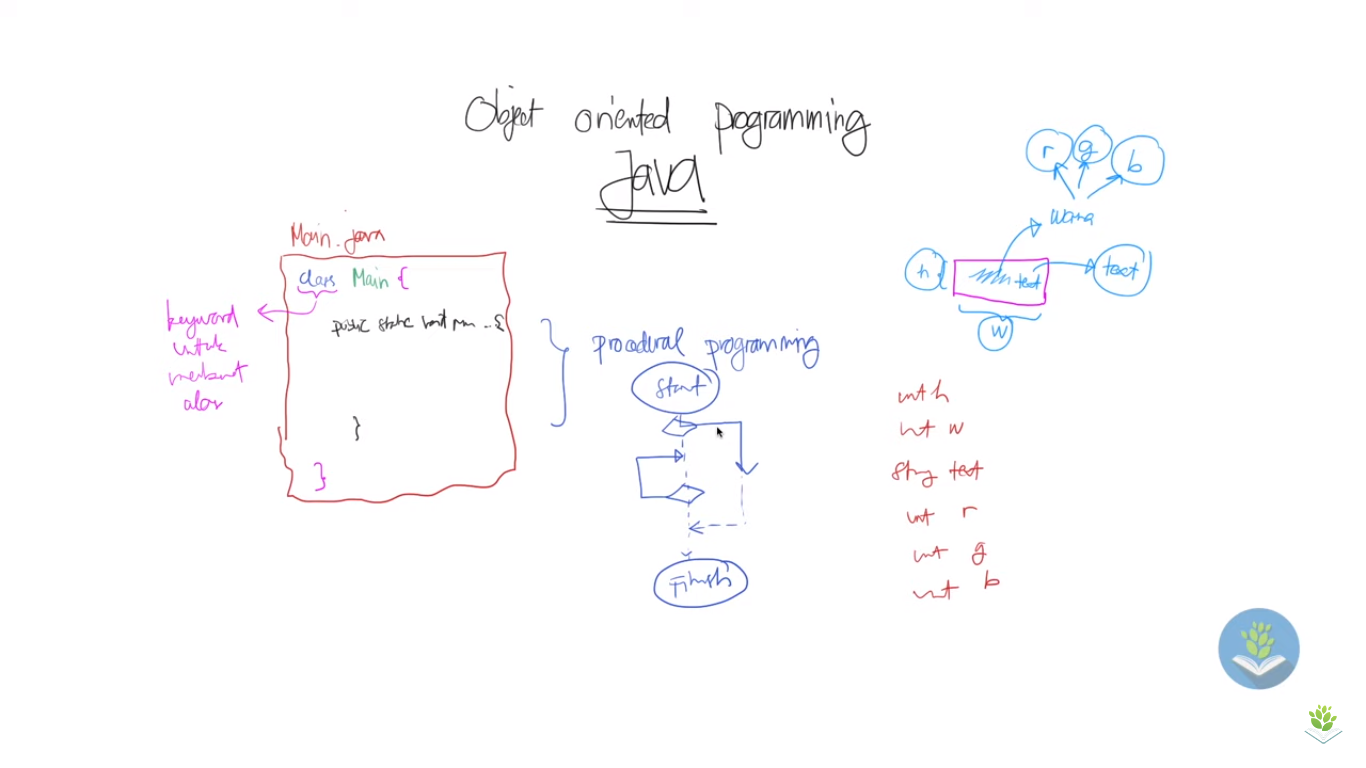 Object oriented programming
Java
Main.java
class Main {
public static void main ..{
}
}
keyword
untuk
membuat
procedural programming
Start
Finish
r g b
warna
h
text
text
w
int h
int w
String text
int r
int g
int b